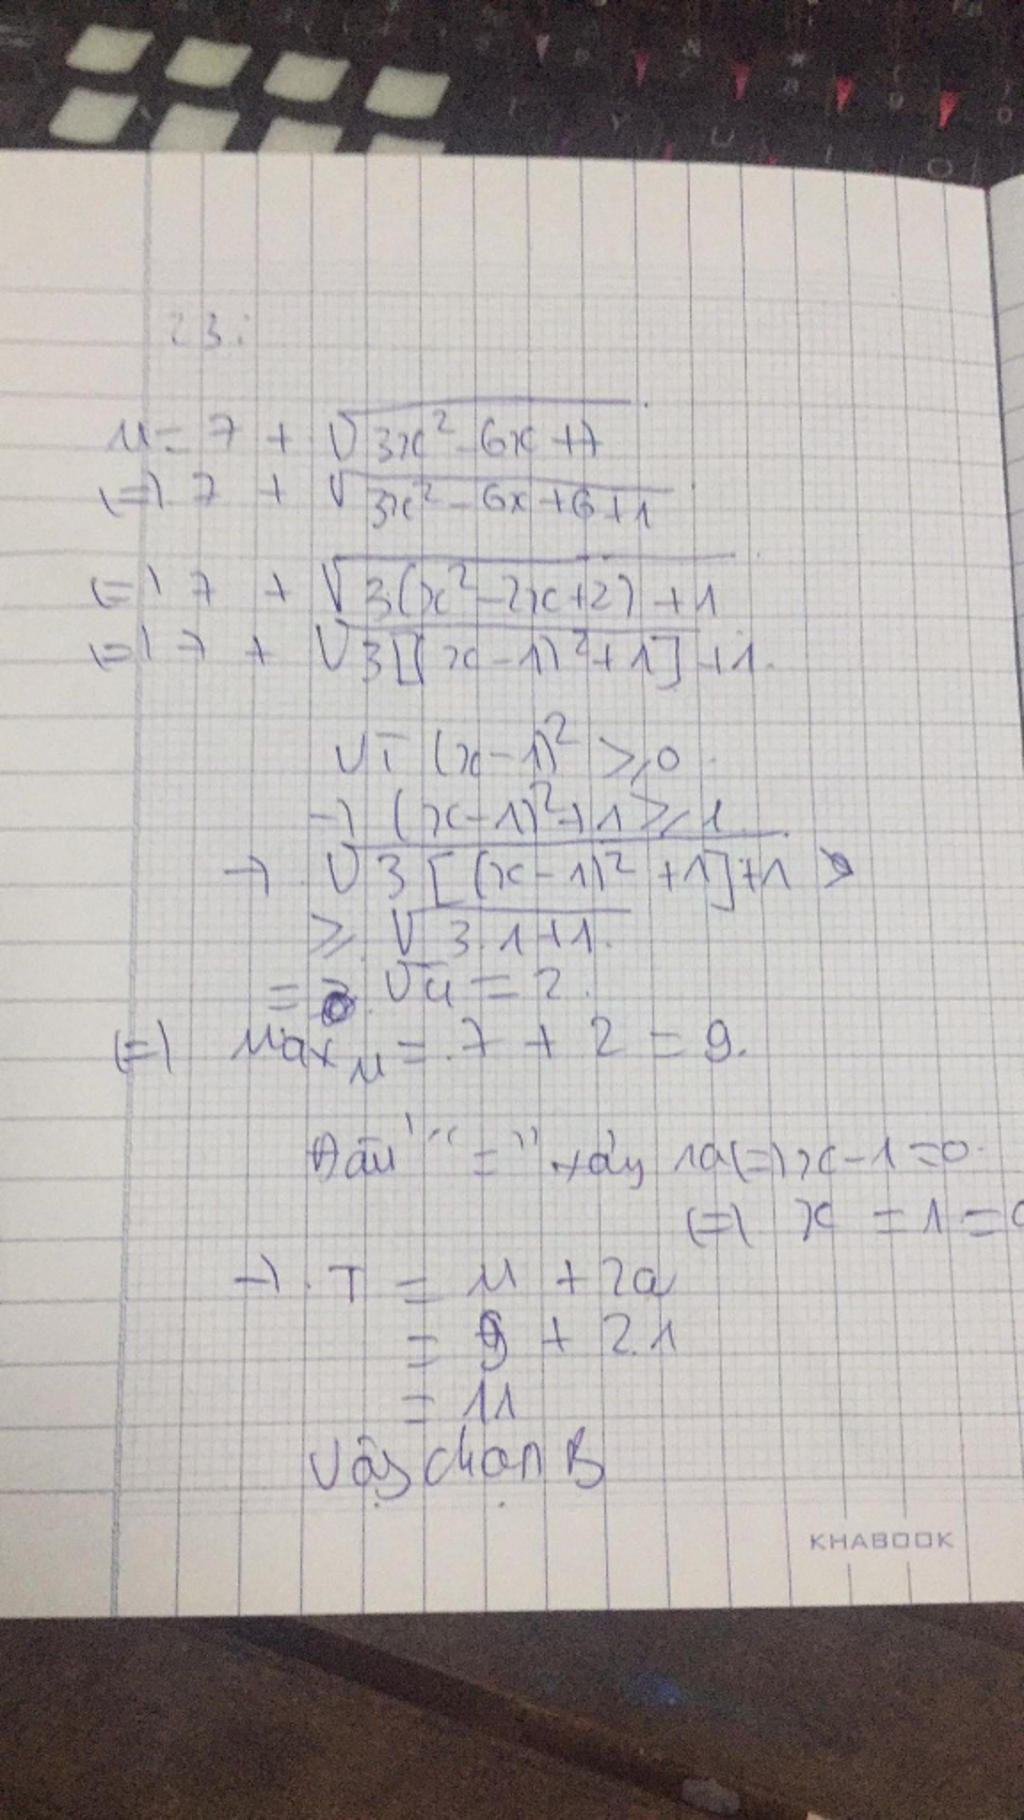 23:
M = 7 + √3x² - 6x + 7
(=) 7 + √3x² - 6x + 6 + 1
(=) 7 + √3(x² - 2x + 2) + 1
(=) 7 + √3[(x - 1)² + 1] + 1.
Vì (x - 1)² ≥ 0
-> (x - 1)² + 1 ≥ 1
-> √3[(x - 1)² + 1] + 1
≥ √3.1 + 1.
= √4 = 2.
(=) Max M = 7 + 2 = 9.
Dấu "=" xảy ra (=) x - 1 = 0
(=) x = 1 = a
-> T = M + 2a
= 9 + 2.1
= 11
Vậy chọn B
KHABOOK